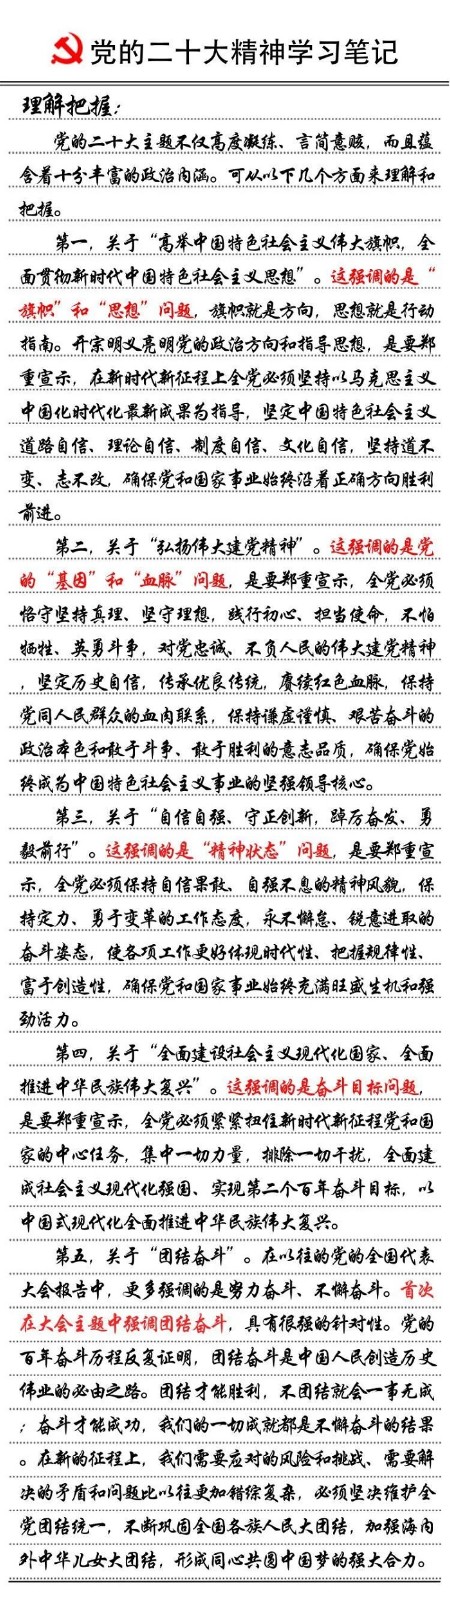 党的二十大精神学习笔记
理解把握：
党的二十大主题不仅高度凝练、言简意赅，而且蕴
含着十分丰富的政治内涵。可从以下几个方面来理解和
把握。
第一，关于“高举中国特色社会主义伟大旗帜，全
面贯彻新时代中国特色社会主义思想”。这强调的是“
旗帜”和“思想”问题，旗帜就是方向，思想就是行动
指南。开宗明义亮明党的政治方向和指导思想，是要郑
重宣示，在新时代新征程上全党必须坚持以马克思主义
中国化时代化最新成果为指导，坚定中国特色社会主义
道路自信、理论自信、制度自信、文化自信，坚持道不
变、志不改，确保党和国家事业始终沿着正确方向胜利
前进。
第二，关于“弘扬伟大建党精神”。这强调的是党
的“基因”和“血脉”问题，是要郑重宣示，全党必须
恪守坚持真理、坚守理想，践行初心、担当使命，不怕
牺牲、英勇斗争，对党忠诚、不负人民的伟大建党精神
，坚定历史自信，传承优良传统，赓续红色血脉，保持
党同人民群众的血肉联系，保持谦虚谨慎、艰苦奋斗的
政治本色和敢于斗争、敢于胜利的意志品质，确保党始
终成为中国特色社会主义事业的坚强领导核心。
第三，关于“自信自强、守正创新，踔厉奋发、勇
毅前行”。这强调的是“精神状态”问题，是要郑重宣
示，全党必须保持自信果敢、自强不息的精神风貌，保
持定力、勇于变革的工作态度，永不懈怠、锐意进取的
奋斗姿态，使各项工作更好体现时代性、把握规律性、
富于创造性，确保党和国家事业始终充满旺盛生机和强
劲活力。
第四，关于“全面建设社会主义现代化国家、全面
推进中华民族伟大复兴”。这强调的是奋斗目标问题，
是要郑重宣示，全党必须紧紧扭住新时代新征程党和国
家的中心任务，集中一切力量，排除一切干扰，全面建
成社会主义现代化强国、实现第二个百年奋斗目标，以
中国式现代化全面推进中华民族伟大复兴。
第五，关于“团结奋斗”。在以往的党的全国代表
大会报告中，更多强调的是努力奋斗、不懈奋斗。首次
在大会主题中强调团结奋斗，具有很强的针对性。党的
百年奋斗历程反复证明，团结奋斗是中国人民创造历史
伟业的必由之路。团结才能胜利，不团结就会一事无成
；奋斗才能成功，我们的一切成就都是不懈奋斗的结果
。在新的征程上，我们需要应对的风险和挑战、需要解
决的矛盾和问题比以往更加错综复杂，必须坚决维护全
党团结统一，不断巩固全国各族人民大团结，加强海内
外中华儿女大团结，形成同心共圆中国梦的强大合力。